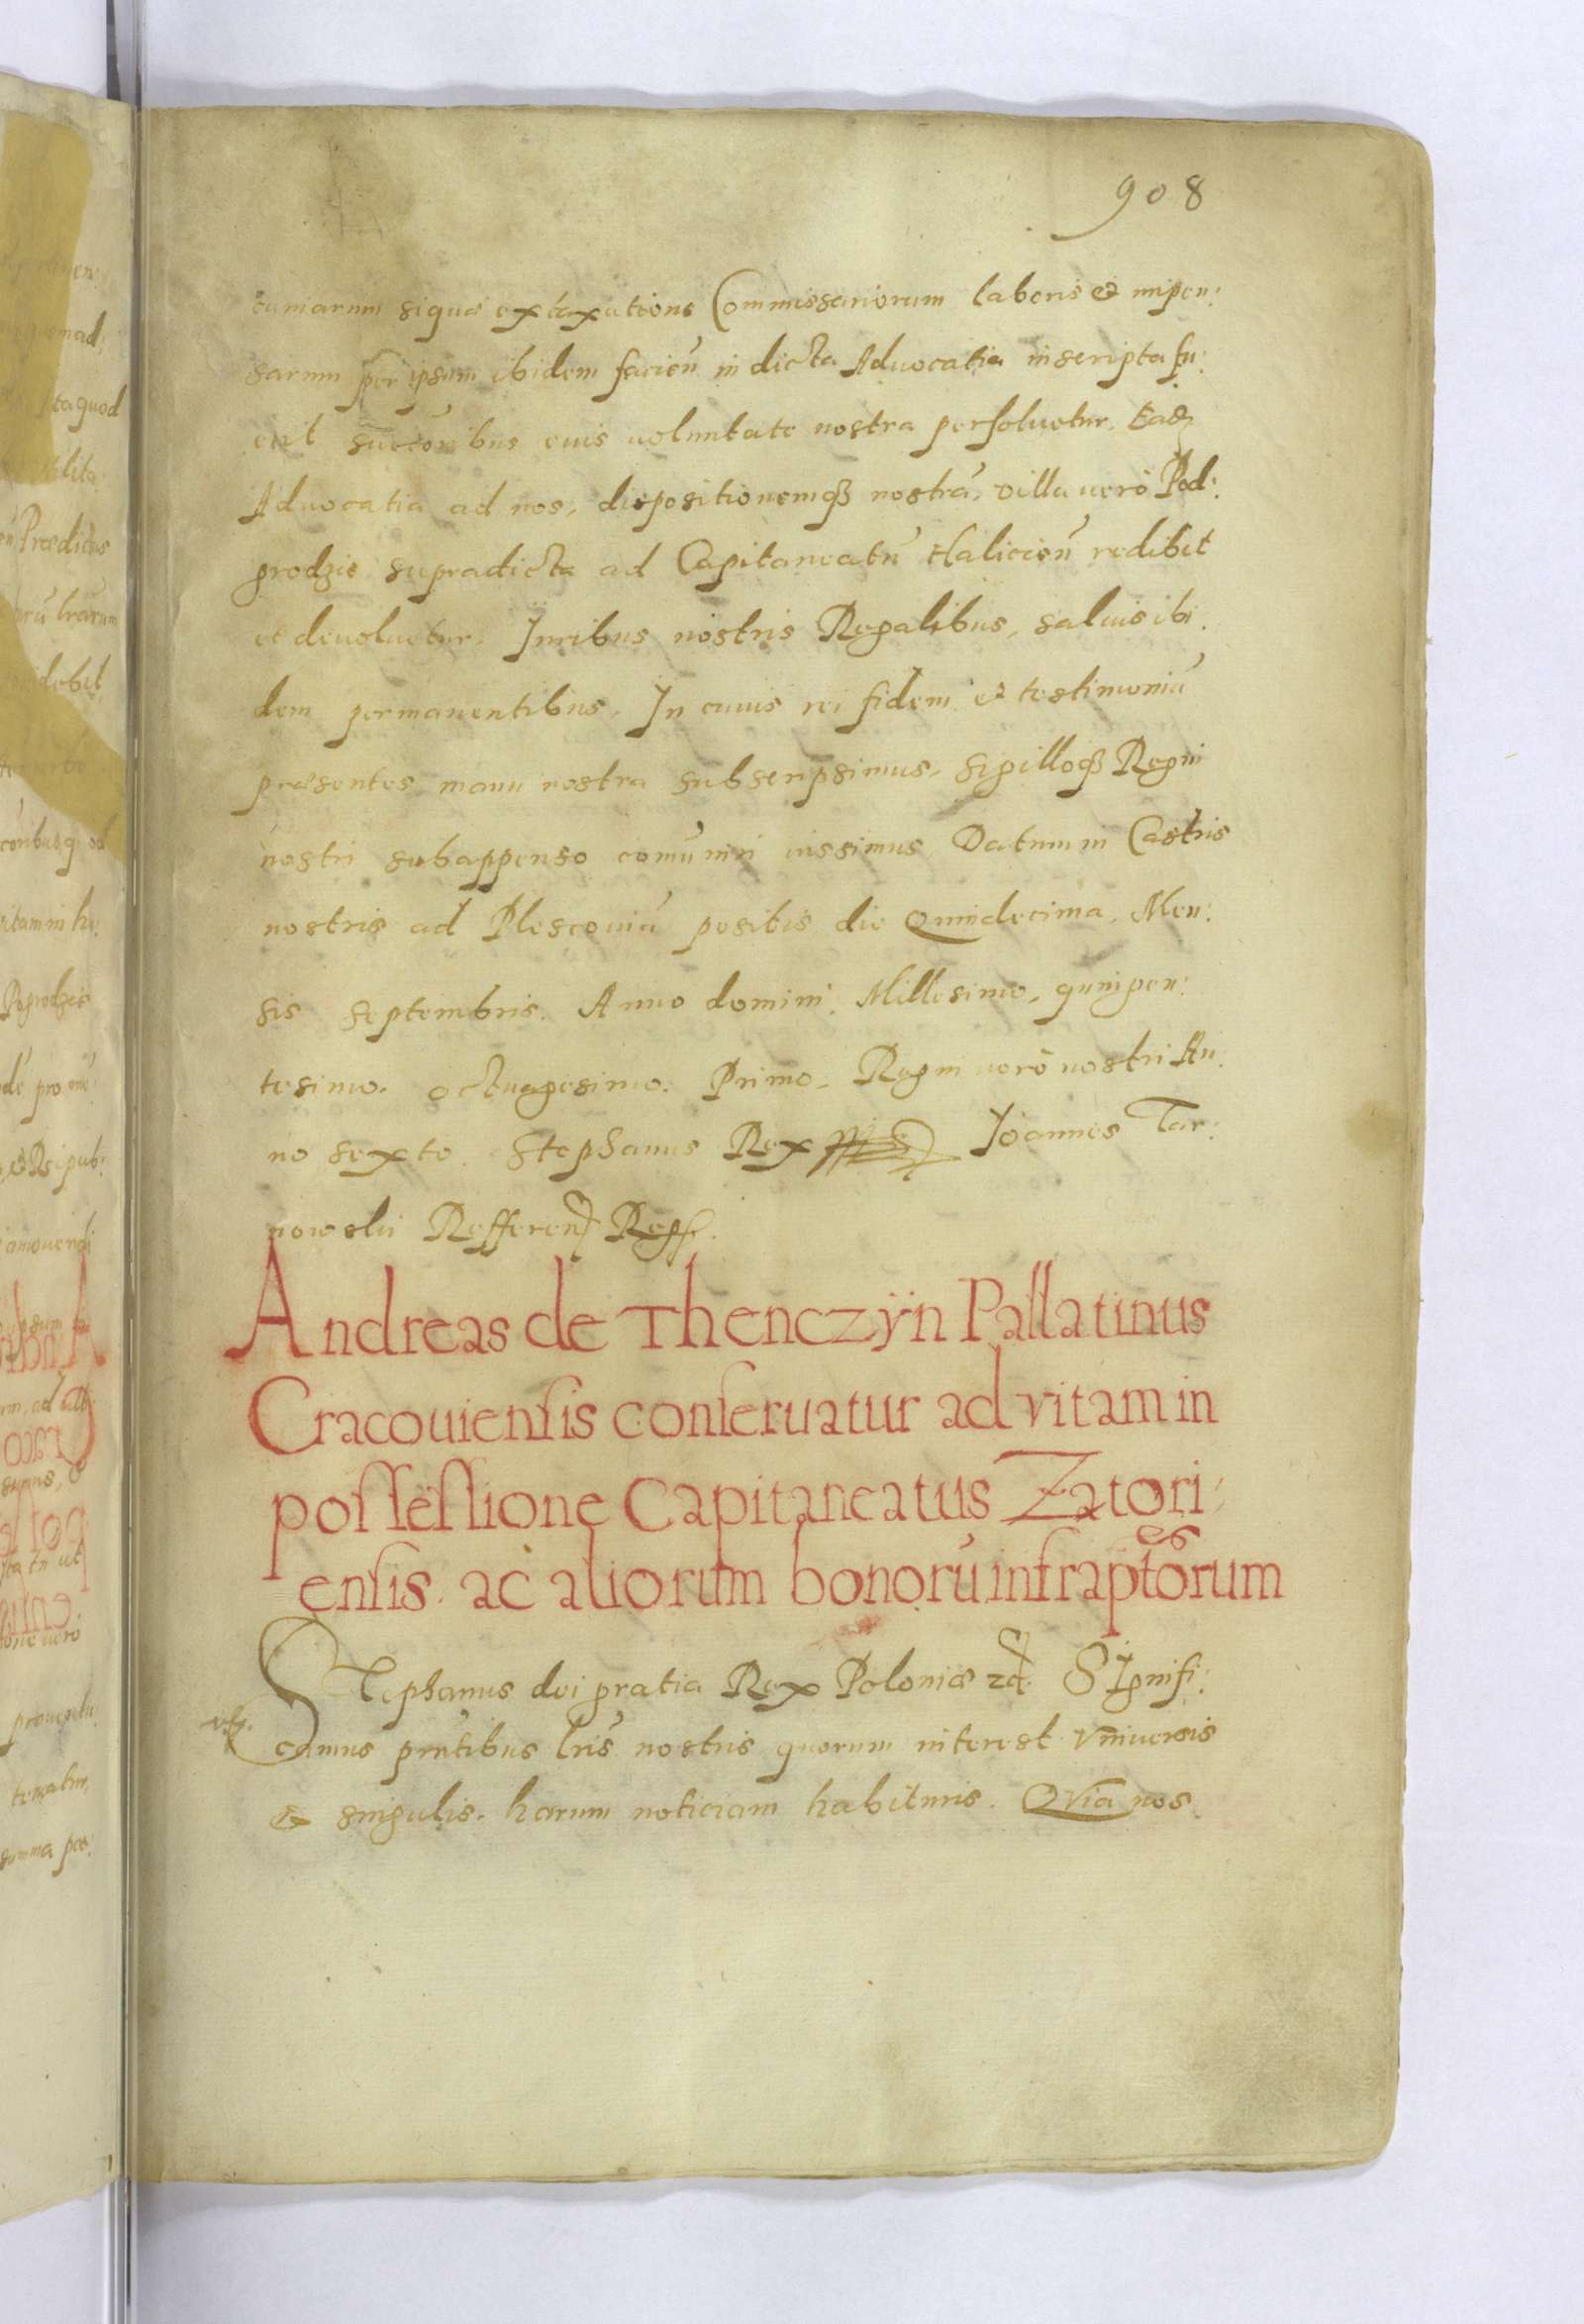 908
cuniarum siqua ex taxatione Commissariorum laboris et impen:
sarum per ipsum ibidem facień in dicta Advocatia inscripta fu:
erit succōribus eius voluntate nostra persolvetur. Eadē
Advocatia ad nos, dispositionemqȝ nostrā, villa uerò Pod:
grodzie supradicta ad Capitaneatū Halicień redibit
et devoluetur. Iuribus nostris Regalibus, saluis ibi
dem permanentibus. In cuius rei fidem et testimoniū
præsentes manu nostra subscripsimus, Sigilloqȝ Regni
nostri subappenso comūniri iussimus Datum in Castris
nostris ad Plescoviā positis die Quindecima, Men:
sis Septembris. Anno domini. Millesimo, quingen:
tesimo. octuagesimo. Primo, Regni uerò nostri An.
no sexto. Stephanus Rex Ioannes Tar:
nowski Refferenḍ
Andreas de Thenczÿn Pallatinus
Cracouiensis conseruatur ad vitam in
possessione Capitaneatus Zatori
ensis. ac aliorum bonorū infraptōrum
es
Stephanus dei gratia Rex Poloniæ zc̄. SIgnifi:
camus pn̄tibus lr̄is nostris quorum interest vniuersis
& singulis. harum noticiam habituris. QVia nos